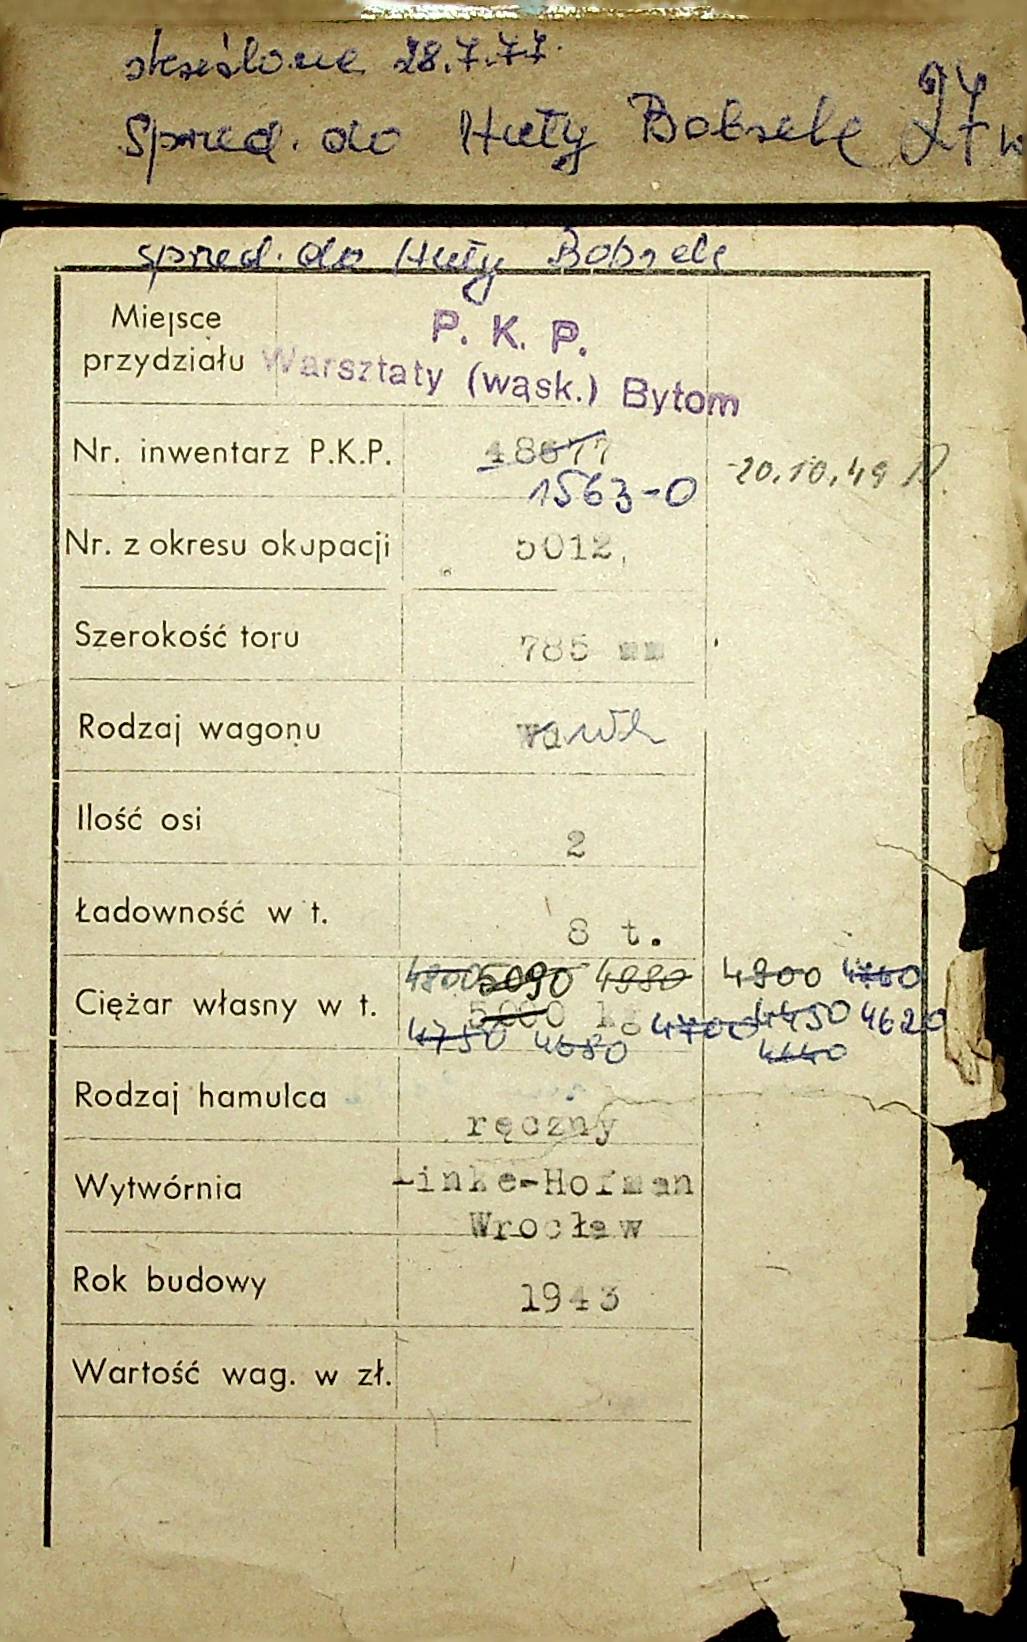 skreślone 28.7.77.
Sprzed. do Huty Bobrek
sprzed. do Huty Bobrek
Miejsce przydziału P. K. P.
Warsztaty (wąsk.) Bytom
Nr. inwentarz P.K.P. 48677
1563-0 20.10.49
Nr. z okresu okupacji 5012,
Szerokość toru 785 mm
Rodzaj wagonu
Ilość osi 2
Ładowność w t. 8 t.
4800 5090 4980 4800 4760
Ciężar własny w t. 5000 kg 4700 4450 4620
4750 4680 4640
Rodzaj hamulca ręczny
Wytwórnia Linke-Hofman
Wrocław
Rok budowy 1943
Wartość wag. w zł.